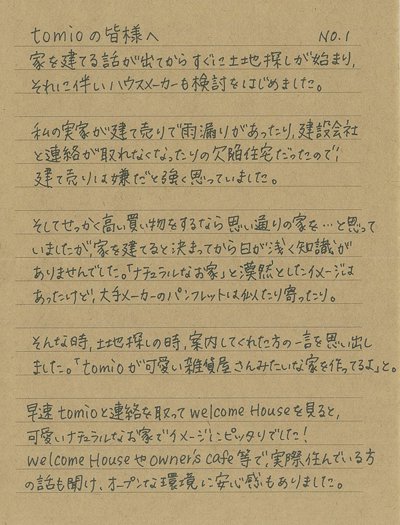 tomioの皆様へ NO.1
家を建てる話が出てからすぐに土地探しが始まり,
それに伴いハウスメーカーも検討をはじめました。
私の実家が建て売りで雨漏りがあったり,建設会社
と連絡が取れなくなったりの欠陥住宅だったので,
建て売りは嫌だと強く思っていました。
そしてせっかく高い買い物をするなら思い通りの家を…と思って
いましたが,家を建てると決まってから日が浅く知識が
ありませんでした。「ナチュラルなお家」と漠然としたイメージは
あったけど,大手メーカーのパンフレットは似たり寄ったり。
そんな時,土地探しの時,案内してくれた方の一言を思い出し
ました。「tomioが可愛い雑貨屋さんみたいな家を作ってるよ」と。
早速tomioと連絡を取ってwelcome Houseを見ると,
可愛いナチュラルなお家でイメージにピッタリでした!
welcome Houseやowner's cafe等で,実際住んでいる方
の話も聞け,オープンな環境に安心感もありました。